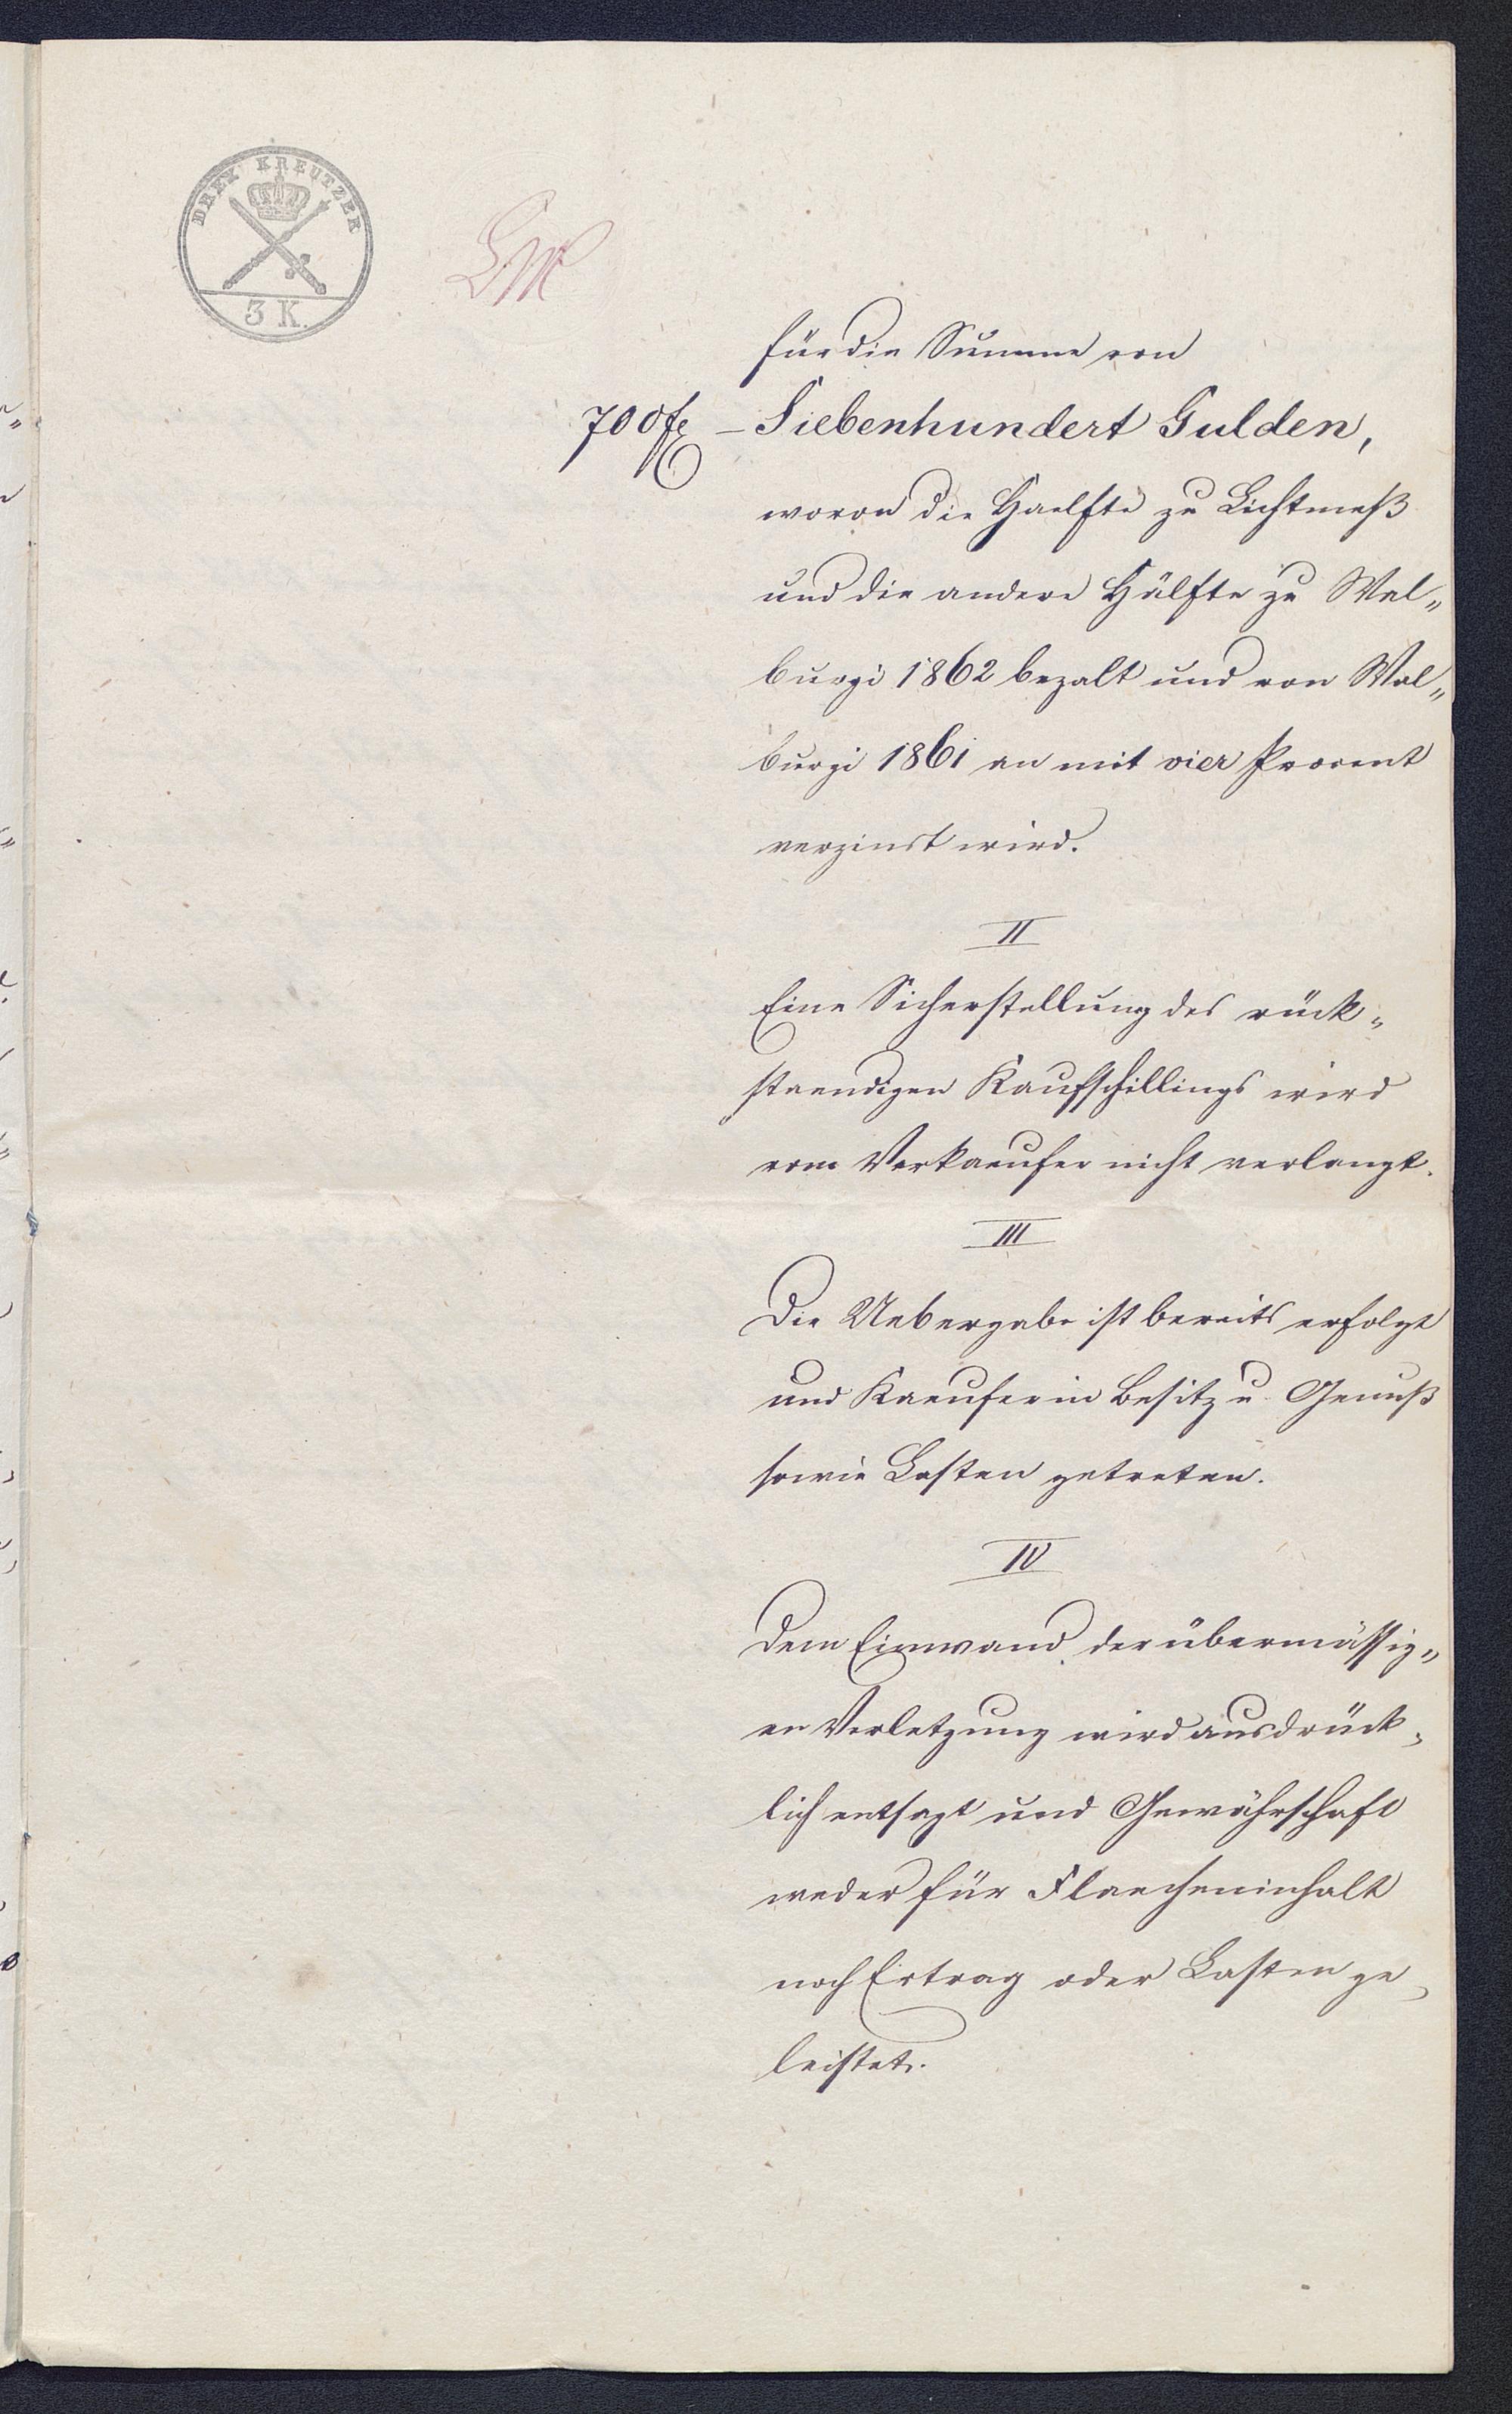 DREY KREUTZER
3 K.
für die Summe von
700 fl – Siebenhundert Gulden,
wovon die Haelfte zu Lichtmeß
und die andere Hälfte zu Wal„
burgi 1862 bezalt und von Wal„
burgi 1861 an mit vier Procent
verzinst wird.
II
Eine Sicherstellung des rück„
staendigen Kaufschillings wird
vom Verkaeufer nicht verlangt.
III
Die Uebergabe ist bereits erfolgt
und Kaeufer in Besitz u. Genuß
sowie Lasten getreten.
IV
Dem Einwand der übermässig„
en Verletzung wird ausdrück„
lich entsagt und Gewährschaft
weder für Flaecheninhalt
noch Ertrag oder Lasten ge„
leistet.